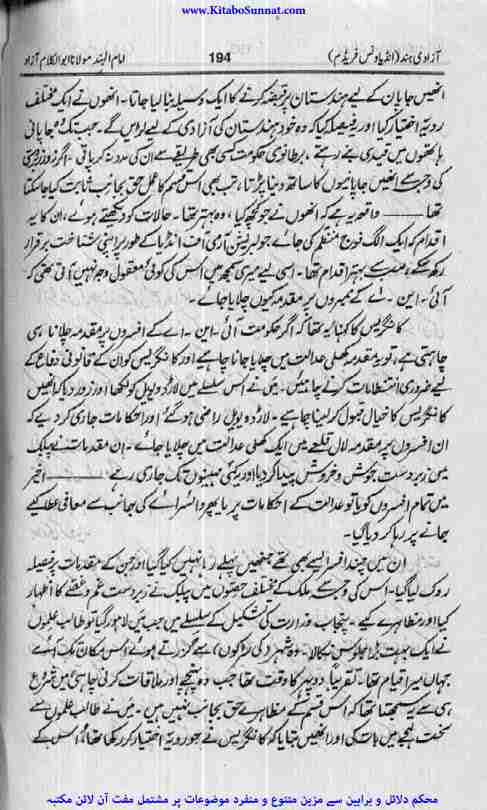 www.KitaboSunnat.com
آزادی ہند (انڈیا ونس فریڈم) 194 امام الہند مولانا ابوالکلام آزاد
انھیں جاپان کے لیے ہندستان پر قبضہ کرنے کا ایک وسیلہ بنا لیا جاتا۔ انھوں نے ایک مختلف
رویہ اختیار کیا اور فیصلہ کیا کہ وہ خود ہندستان کی آزادی کے لیے لڑیں گے۔ جب تک وہ جاپانی
ہاتھوں میں قیدی بنے رہتے، برطانوی حکومت کسی بھی طریقے سے ان کی مدد نہ کر پاتی۔ اگر زور زبردستی
کی وجہ سے انھیں جاپانیوں کا ساتھ دینا پڑتا، تب بھی اس قسم کا عمل حق بجانب ثابت کیا جا سکتا
تھا ——— واقعہ یہ ہے کہ انھوں نے جو کچھ کیا، وہ بہتر تھا۔ حالات کو دیکھتے ہوئے، ان کا یہ
اقدام کہ ایک الگ فوج منظم کی جائے جو لبریشن آرمی آف انڈیا کے طور پر اپنی شناخت برقرار
رکھ سکے، بہتر اقدام تھا۔ اسی لیے میری سمجھ میں اس کی کوئی معقول وجہ نہیں آتی تھی کہ
آئی۔ این۔ اے کے ممبروں پر مقدمہ کیوں چلایا جائے۔
کانگریس کا کہنا یہ تھا کہ اگر حکومت آئی۔ این۔ اے کے افسروں پر مقدمہ چلانا ہی
چاہتی ہے، تو یہ مقدمہ کھلی عدالت میں چلایا جانا چاہیے اور کانگریس کو ان کے قانونی دفاع کے
لیے ضروری انتظامات کرنے چاہئیں۔ میں نے اس سلسلے میں لارڈ ویول کو لکھا اور زور دیا کہ انھیں
کانگریس کا خیال قبول کر لینا چاہیے۔ لارڈ ویول راضی ہو گئے اور احکامات جاری کر دیے کہ
ان افسروں پر مقدمہ لال قلعے میں ایک کھلی عدالت میں چلایا جائے۔ ان مقدمات نے پبلک
میں زبردست جوش و خروش پیدا کر دیا اور کئی مہینوں تک جاری رہے ——— اخیر
میں تمام افسروں کو یا تو عدالت کے احکامات پر یا پھر وائسرائے کی جانب سے معافی عطا کیے
جانے پر رہا کر دیا گیا۔
ان میں چند افسر ایسے بھی تھے جنھیں پہلے رہا نہیں کیا گیا اور جن کے مقدمات پر فیصلہ
روک لیا گیا۔ اس کی وجہ سے ملک کے مختلف حصوں میں پبلک نے زبردست غم و غصے کا اظہار
کیا اور مظاہرے کیے۔ پنجاب وزارت کی تشکیل کے سلسلے میں جب میں لاہور گیا تو طالب علموں
نے ایک بہت بڑا جلوس نکالا۔ وہ شہر کی سڑکوں سے گزرتے ہوئے اس مکان تک آئے
جہاں میرا قیام تھا۔ تقریباً دوپہر کا وقت تھا جب وہ پہنچے اور ملاقات کرنی چاہی۔ میں شروع
ہی سے یہ سمجھتا تھا کہ اس قسم کے مظاہرے حق بجانب نہیں ہیں۔ میں نے طالب علموں سے
سخت لہجے میں بات کی اور انھیں بتایا کہ کانگریس نے جو رویہ اختیار کر رکھا تھا، اس کے
محکم دلائل و براہین سے مزین متنوع و منفرد موضوعات پر مشتمل مفت آن لائن مکتبہ